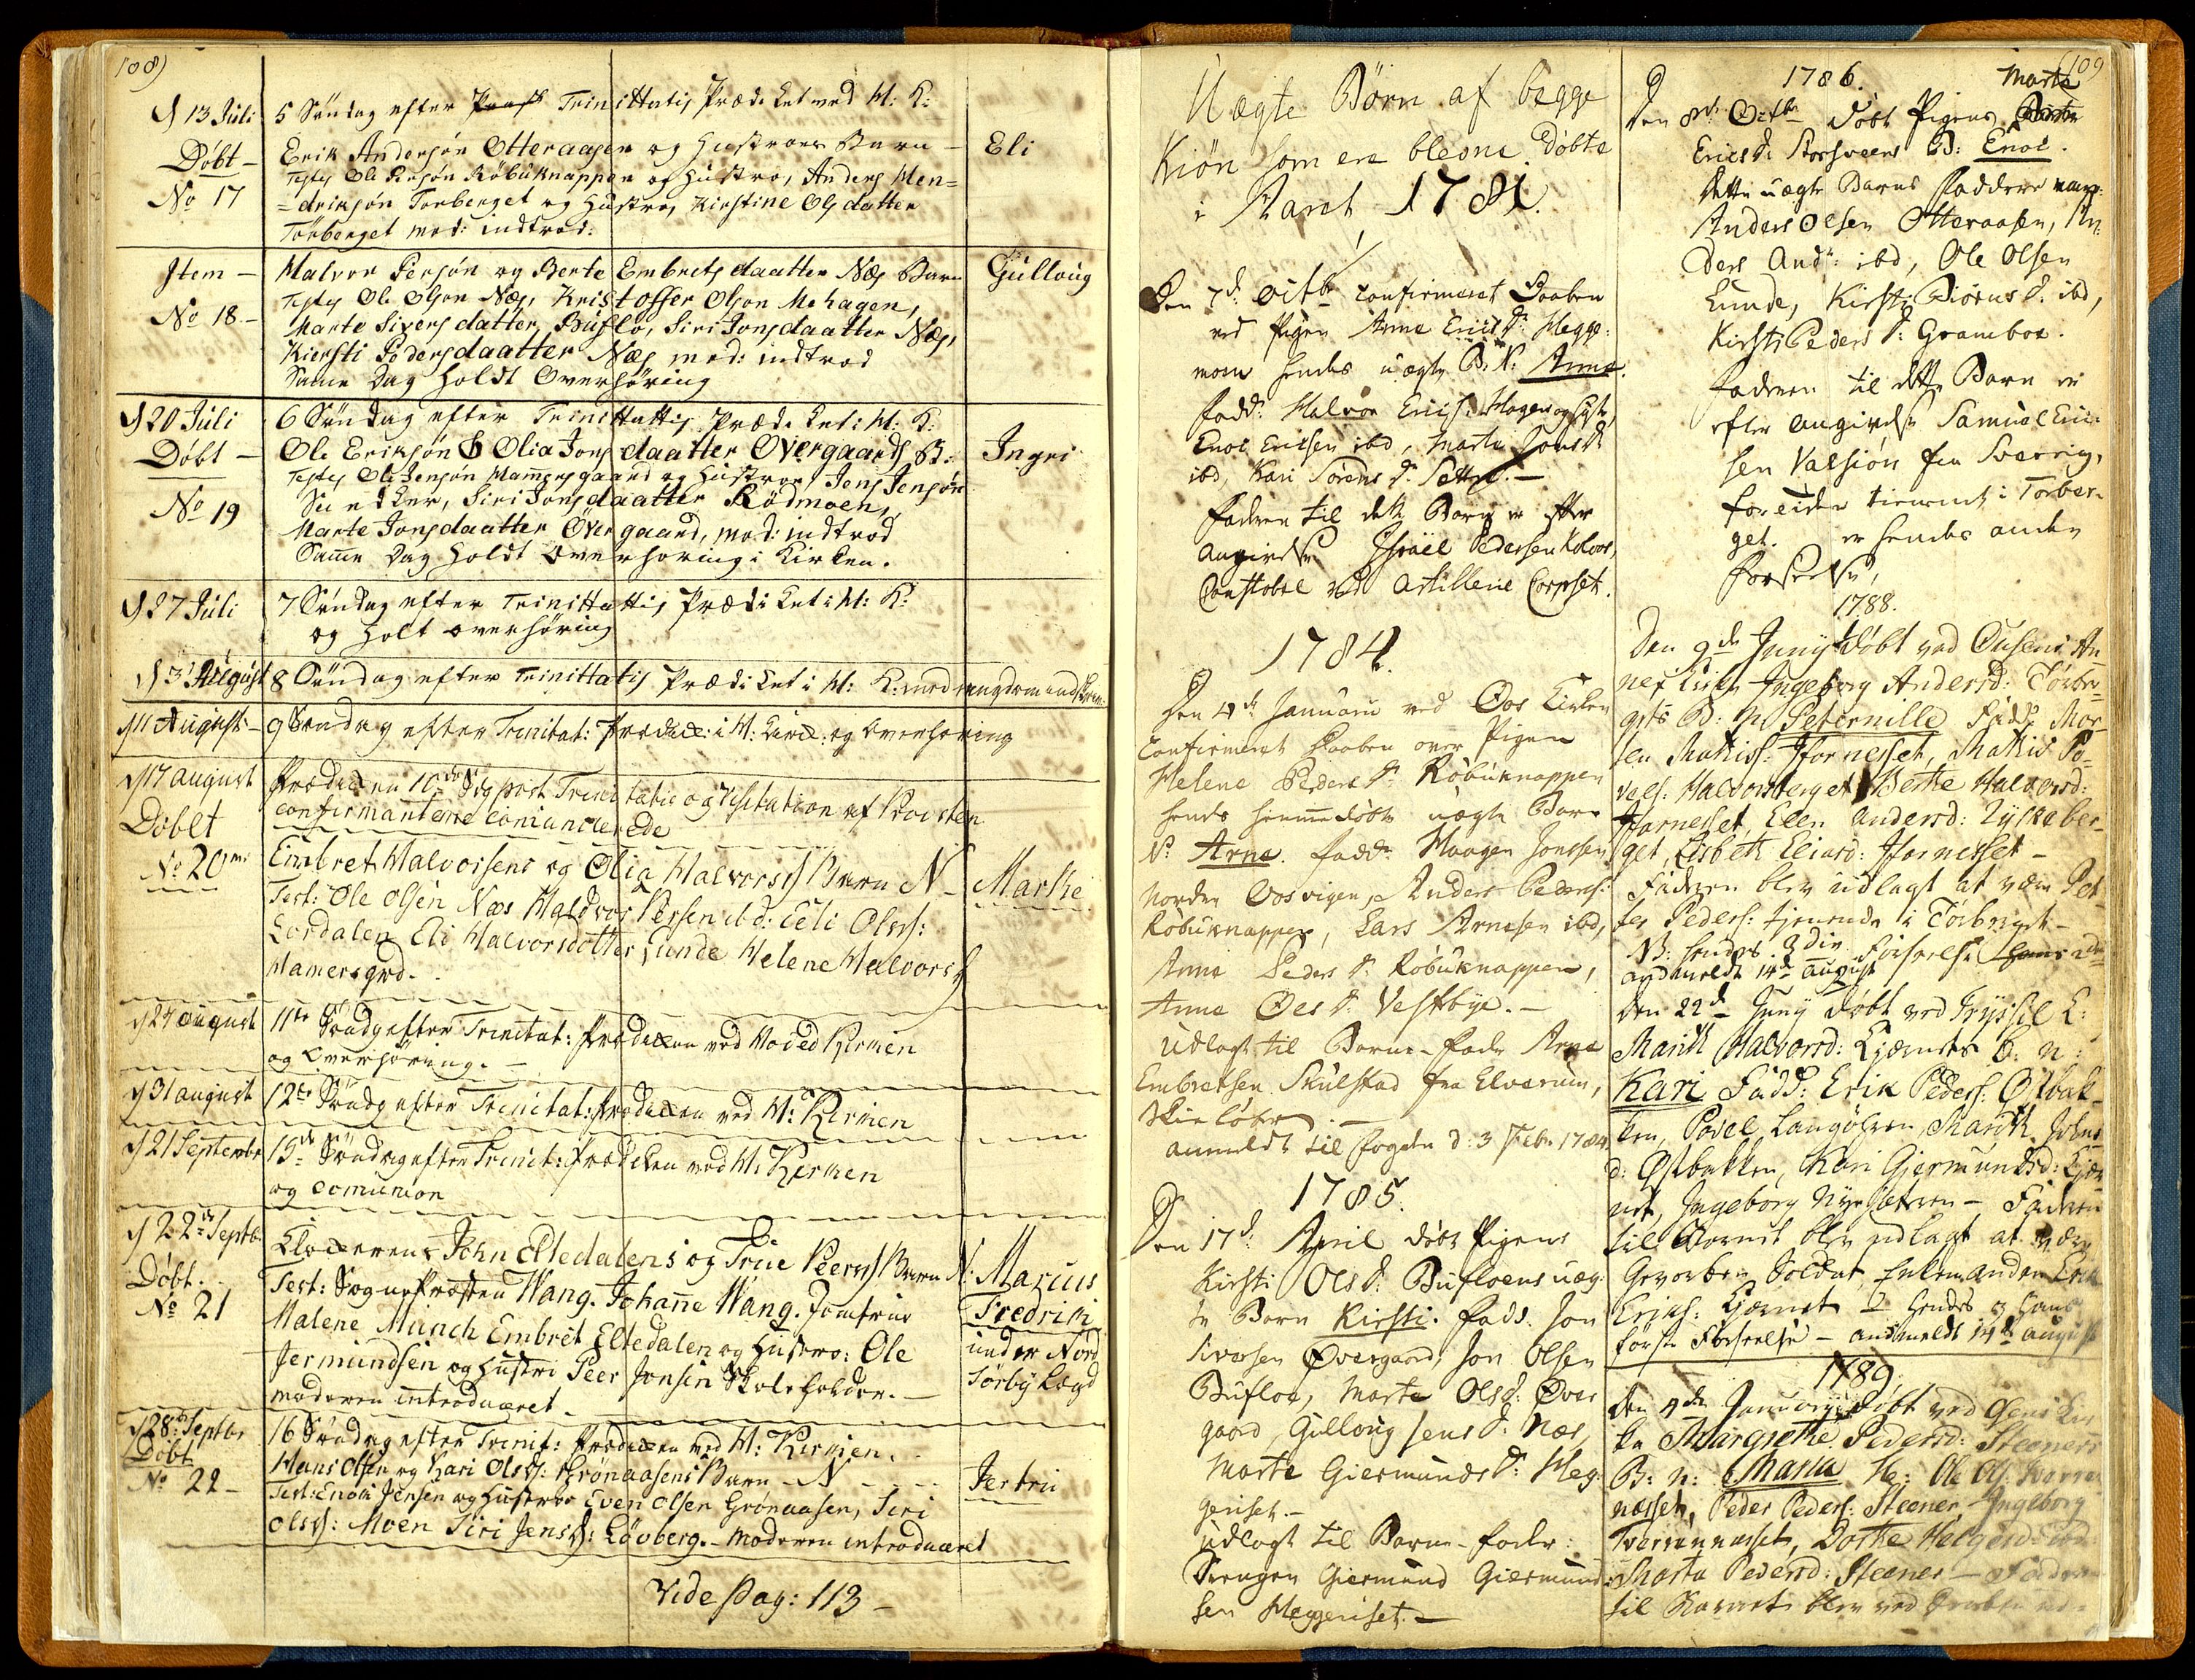 108)
d 13 Juli 5 Søndag efter Trinittatis Præd. ket ved H: K:
Døbt - Erik Andersøn Otteraasen og Hustroes Barn - Eli
Testes Ole Persøn Röbuknappen og Hustro, Anders Hen=
No 17 =driksøn Torberget og Hustro, Kirstine Ols datter
Torberget mod: indtrod.
Item - Halvor Persøn og Berte Embrets daatter Næs Barn Gulloug
Testes Ole Olson Næs, Kristoffer Olson Mohagen,
No 18.- Marte Sivers datter Bufloe, Siri Jons daatter Næs,
Kiersti Peders daatter Næs mod: indtrod
Same Dag holdt Overhøring
d 20 Juli 6 Søndag efter Trinittattis Præd. ket i H: K:
Døbt - Ole Eriksøn & Olia Jons daatter Overgaards B: Ingri
Testes Ole Jensøn Mamersgaard og Hustroe, Jens Jensøn
No 19 Siri Jons daatter Rödmoen,
Marte Jons daatter Övergaard, mod: indtrod
Same Dag holdt overhøring i Kirken.
d 27 Juli 7 Søndag efter Trinittattis Præd. ket i H: K:
og holt overhøring
d 3 August 8 Søndag efter Trinittatis Præd. ket i H: K:
d 11 August - 9 Søndag efter Trinitat: Prædik: i H: Kirk: og Overhøring
d 17 august Prædiken 10de Søg post Trinitatis og Visitation af Provsten
confirmanterne comunicerede
Døbt
No 20 Embret Halvorsens og Olia Halvors D Barn N - Marthe
Test: Ole Olsen Næs Haldvor Persen ibd: Eeli Ols D:
Lordalen Eli Halvorsdotter Lunde Helene Halvors D
Mamersgrd.
d 24 august 11te Søndag efter Trinitat: Prædiken ved Hoved Kirken
og Overhøring. -
d 31 august 12te Søndag efter Trinitat: Prædiken ved H: Kirken
d 21 Septembr 15de Søndag efter Trinit: Prædiken ved H: Kirken
og Comunion
d 22de Septb. Klokkerens John Eltedalens og Trine Peers D Barn N: Marcus
Døbt. Test: Sognepræsten Wang. Johane Wang. Jomfrue Fredrik
No 21 Malene Münch Embret Eltedalen og Hustro: Ole under Nord
Jermundsen og Hustru Peer Jonsen Skoleholder. - Sørby Lægd
moderen introduceret -
d 28 Septbr 16 Søndag efter Trinit: Prædiken ved H: Kirken.
Døbt Hans Olsen og Kari Ols D: Grønaasens Barn - N - Jertru
No 22 - Test: Enok Jensen og Hustroe Even Olsen Grønaasen, Siri
Ols D: Moen Siri Jens D: Løvberg. - Moderen introduceret
Vide Pag: 113 -
Uægte Børn af begge
Kiøn som ere blevne Døbte
i Aaret 1781.
Den 7de Octbr confirmeret Daaben
ved Pigen Anne Erics Dr Hegge:
moen hendes uægte B. N: Anne.
Fadd: Halvor Erics: Hagen og Hustr,
Enoc Ericsen ibd, Marte Jons Dr
ibd, Kari Sörens Dr Setter. -
Faderen til dette Barn er efter
angivelse Israel Pedersen Koloos,
Constabel ved Artillerie Corpset.
1784.
Den 4de Januarii ved Oos Kirken
Confirmeret Daaben over Pigen
Helene Peders Dr Röbuknappen
hendes hiemmedøbte uægte Barn
N: Arne. Fadd: Haagen Jonsen
Norder Oosvigen, Anders Peders:
Röbuknappen, Lars Arnesen ibd,
Anne Peders Dr Röbuknappen,
Anne Oles Dr Vestbye. -
Udlagt til Barne-fader Arne
Embretsen Skulstad fra Elverum,
Skieløber. -
anmeldt til Fogden d: 3 Febr. 1784.
1785.
Den 17de April døbt Pigens
Kirsti Ols Dr Bufloens uæg:
te Barn Kirsti. Fadd. Jon
Siversen Øvergaard, Jon Olsen
Bufloe, Marte Ols Dr Øver
gaard, Gulloug Jens Dr Næs,
Marte Giermunds Dr Heg:
geriset. -
udlagt til Barne-fader:
Drengen Giermund Giermund:
sen Heggeriset. -
109
1786.
Den 8de Octbr døbt Pigens Marte
Erics Dr Storsveens B: Enoc.
dette uægte Barns Faddere vare:
Anders Olsen Otteraasen, An:
ders And: ibd, Ole Olsen
Lunde, Kirsti Biörns Dr ibd,
Kirsti Peders Dr Gramboe.
Faderen til dette Barn er
efter angivelse Samuel Eric:
sen Valsiøn fra Sverrig,
forleden tienende i Torber:
get. er hendes anden
forseelse,
1788.
Den 9de Juny døbt ved
Ingeborg Andersd: Törber
gets B: N: Peternille Fadd: Mor
ten Mathiss: Jfornesset, Mathis Po
vels: Halvorsberget Berthe Halvorsd:
Jfornesset, Elen Andersd: Zyskeber
get, Lisbeth Eliasd: Jfornesset -
Faderen blev udlagt at være Pet
ter Peders: tienende i Törberget -
NB: hendes 3die Forseelse hans
andmeldt 14de August
Den 22de Juny døbt ved Trysil K:
Marith Halvorsd: Kiærnets B: N:
Kari Fadd: Erik Peders: Østbak
ken, Povel Langölven, Marith Johns
d: Østbakken, Kari Gjermundsd: Kjær
net, Ingeborg Nysæteren - Faderen
til Barnet blev udlagt at være
Gevorben Soldat Enkemanden Erik
Eriks: Kjærnet - hendes og hans
første Forseelse - andmeldt 14de August
1789
Den 4de Januarii døbt ved
Margrethe Pedersd: Steeners
B: N: Maria Te: Ole Ols:
næsset, Peder Peders: Steener, Ingeborg
Dorthe Helgesd:
Marta Pedersd: Steener - Faderen
til Barnet blev ved